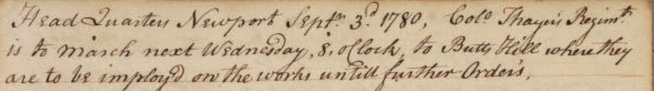 Head Quarters Newport Septr. 3d. 1780, Colo. Thayer's Regimt.
is to march next Wednesday, 8, oClock, to Butts Hill where they
are to be imploy'd on the works untill further Orders,